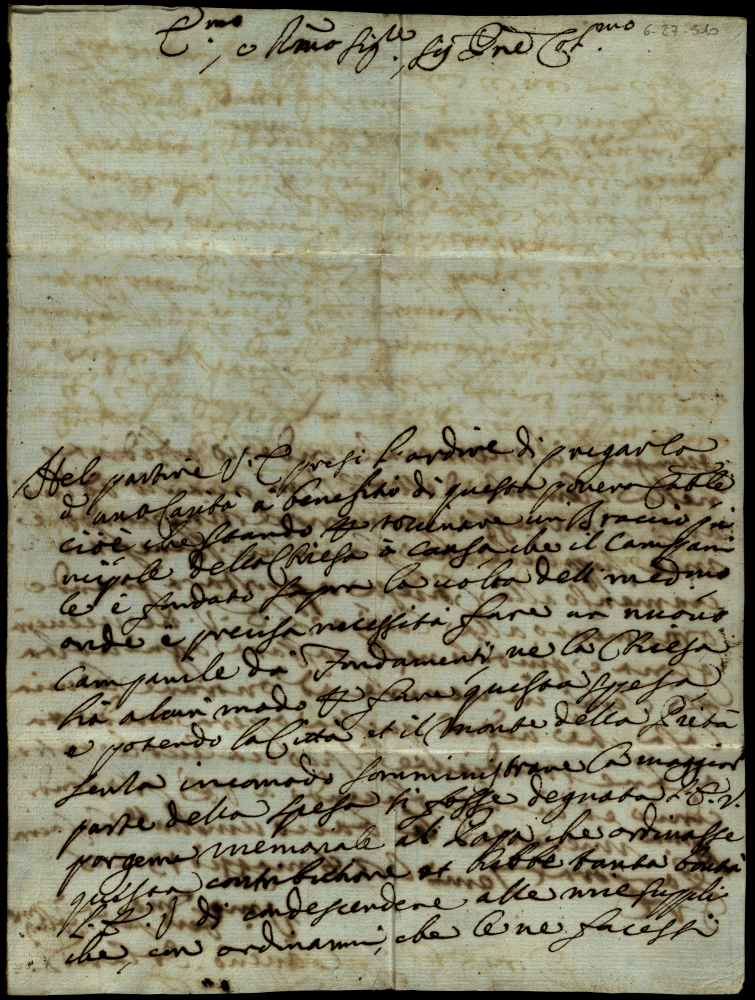 E.mo, e R.mo Sig.re, Sig.r Pne Col.mo 6-27-510
Nel partire V. E. presi l'ardire di pregarla
d'una Carità a benefitio di questa povera Catt.le
cioè che stando p rouinare un Braccio pri
ncipale della Chiesa à causa che il Campani
le è fondato sopra la uolta dell' med.mo
onde è precisa necessità fare un nuouo
Campanile da' Fondamenti, ne la Chiesa
hà alcun modo p fare questa spesa,
e potendo la Città et il Monte della Pietà
senza incomodo somministrare la maggior
parte della spesa si fosse degnata l'E. V.
porgerne memoriale al Papa che ordinasse
questa contributione et hebbe tanta bontà
l'E. V. di condescendere alle mie suppli
che, con ordinarmi, che le ne facessi